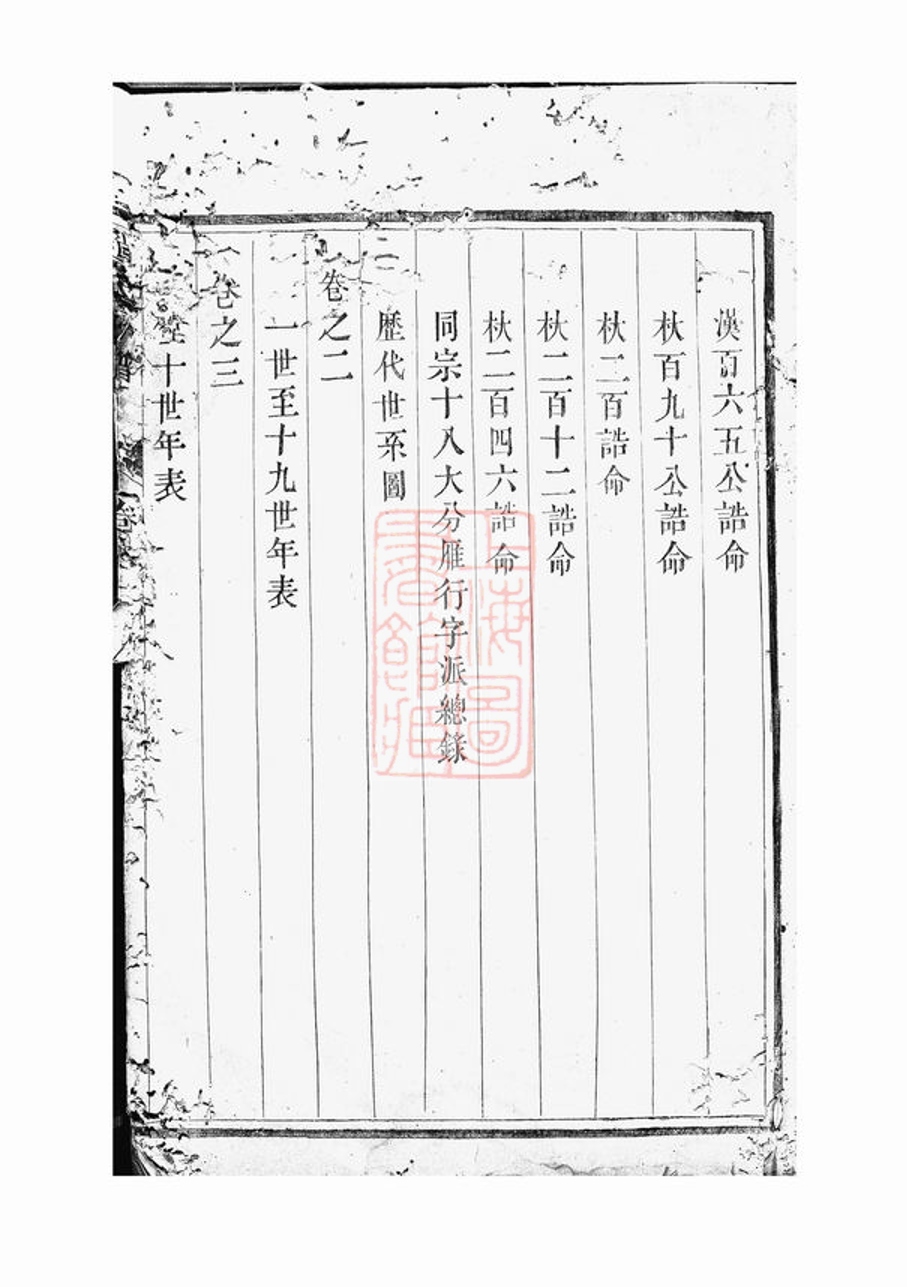 漢百六五公誥命
杕百九十公誥命
杕二百誥命
杕二百十二誥命
杕二百四六誥命
同宗十八大分雁行字派總錄
歷代世系圖
卷之二
一世至十九世年表
卷之三
十世年表
上海圖書館藏